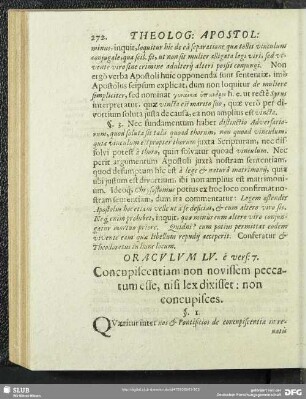 272. THEOLOG: APOSTOL:
minus, inquit, loquitur hîc de ea separatione quæ tollit vinculum
conjugale, qua scil. fit, ut non sit mulier alligata legi viri, sed vi-
vente viro sine crimine adulterij alteri possit conjungi. Non
ergò verba Apostoli huic opponenda sunt sententiæ, imò
Apostolus seipsum explicat, dum non loquitur de muliere
simpliciter, sed nominat
interpretatur, quæ vincta est marito suo, quæ verò per di-
vortium soluta justa de causa, ea non amplius est vincta.
§. 3. Nec fundamentum habet distinctio Adversario-
rum, quod soluta sit talis quoad thorum, non quoad vinculum,
quia vinculum est propter thorum juxta Scripturam, nec dis-
solvi potest à thoro, quin solvatur quoad vinculum. Nec
perit argumentum Apostoli juxtà nostram sententiam,
quod desumptum hîc est à lege & naturâ matrimonij, quia
ubi justum est divortium, ibi non amplius est matrimoni-
um. Ideoq; Chrysostomus potius ex hoc loco confirmat no-
stram sententiam, dum ita commentatur: Legem ostendit
Apostolus hoc etiam velle ut à se desciscat, & cum altero viro sit.
Neq; enim prohibet, inquit, quo minus cum altero viro conju-
gatur mortuo priore. Quidni? cum potius permittat eodem
vivente cum qua libellum repudij acceperit. Conferatur &
Theophylactus in hunc locum.
ORACULUM LV. è vers. 7.
Concupiscentiam non novissem pecca-
tum esse, nisi lex dixisset: non
concupisces.
§. 1.
Quæritur inter nos & Pontificios de concupiscentia in re-
natis
SLUB
DFG